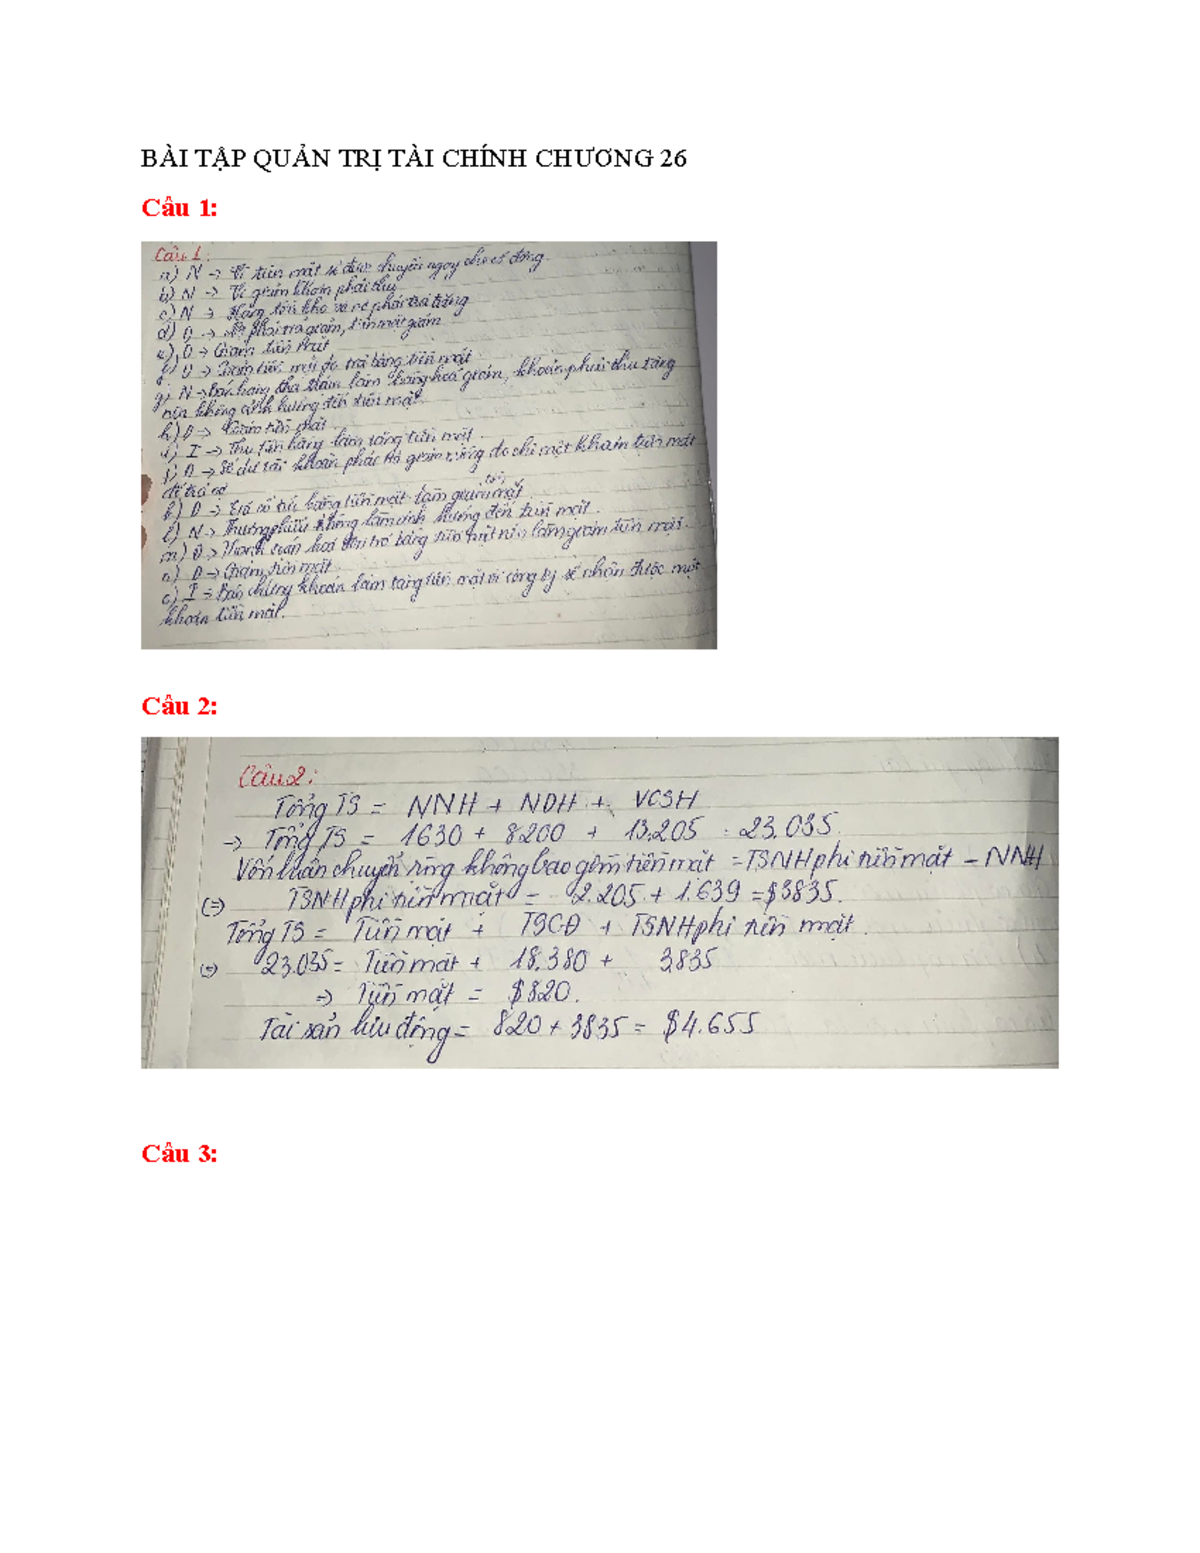 BÀI TẬP QUẢN TRỊ TÀI CHÍNH CHƯƠNG 26
Câu 1:
Câu 1:
a) N → Vì tiền mặt sẽ được chuyển ngay cho cổ đông.
b) N → Vì giảm khoản phải thu
c) N → Hàng tồn kho và nợ phải trả tăng
d) D → phải trả giảm, tiền mặt giảm
D → Giảm tiền mặt
D → trả bằng tiền mặt
g) N → Bán hàng làm hàng hoá giảm, khoản phải thu tăng
nên không ảnh hưởng đến tiền mặt.
h) D → Giảm tiền mặt
I → Thu tiền hàng làm tăng tiền mặt.
j) D → Số dư tài khoản phải trả giảm do chi một khoản tiền mặt
để trả nợ
k) D → Trả cổ tức bằng tiền mặt làm giảm mặt
l) N → Thương phiếu không làm ảnh hưởng đến tiền mặt.
m) D → Thanh toán hoá đơn bằng tiền mặt nên làm giảm tiền mặt.
n) D → Giảm tiền mặt
I → Bán chứng khoán làm tăng tiền mặt vì công ty sẽ nhận được một
khoản tiền mặt.
Câu 2:
Câu 2:
Tổng TS = NNH + NDH + VCSH
→ Tổng TS = 1630 + 8200 + 13.205 = 23.035.
Vốn luân chuyển ròng không bao gồm tiền mặt = TSNH phi tiền mặt - NNH
(=) TSNH phi tiền mặt = 2.205 + 1.639 = $3835.
Tổng TS = Tiền mặt + TSCĐ + TSNH phi tiền mặt.
(=) 23.035 = Tiền mặt + 18.380 + 3835
=> Tiền mặt = $820.
Tài sản lưu động = 820 + 3835 = $4.655
Câu 3: